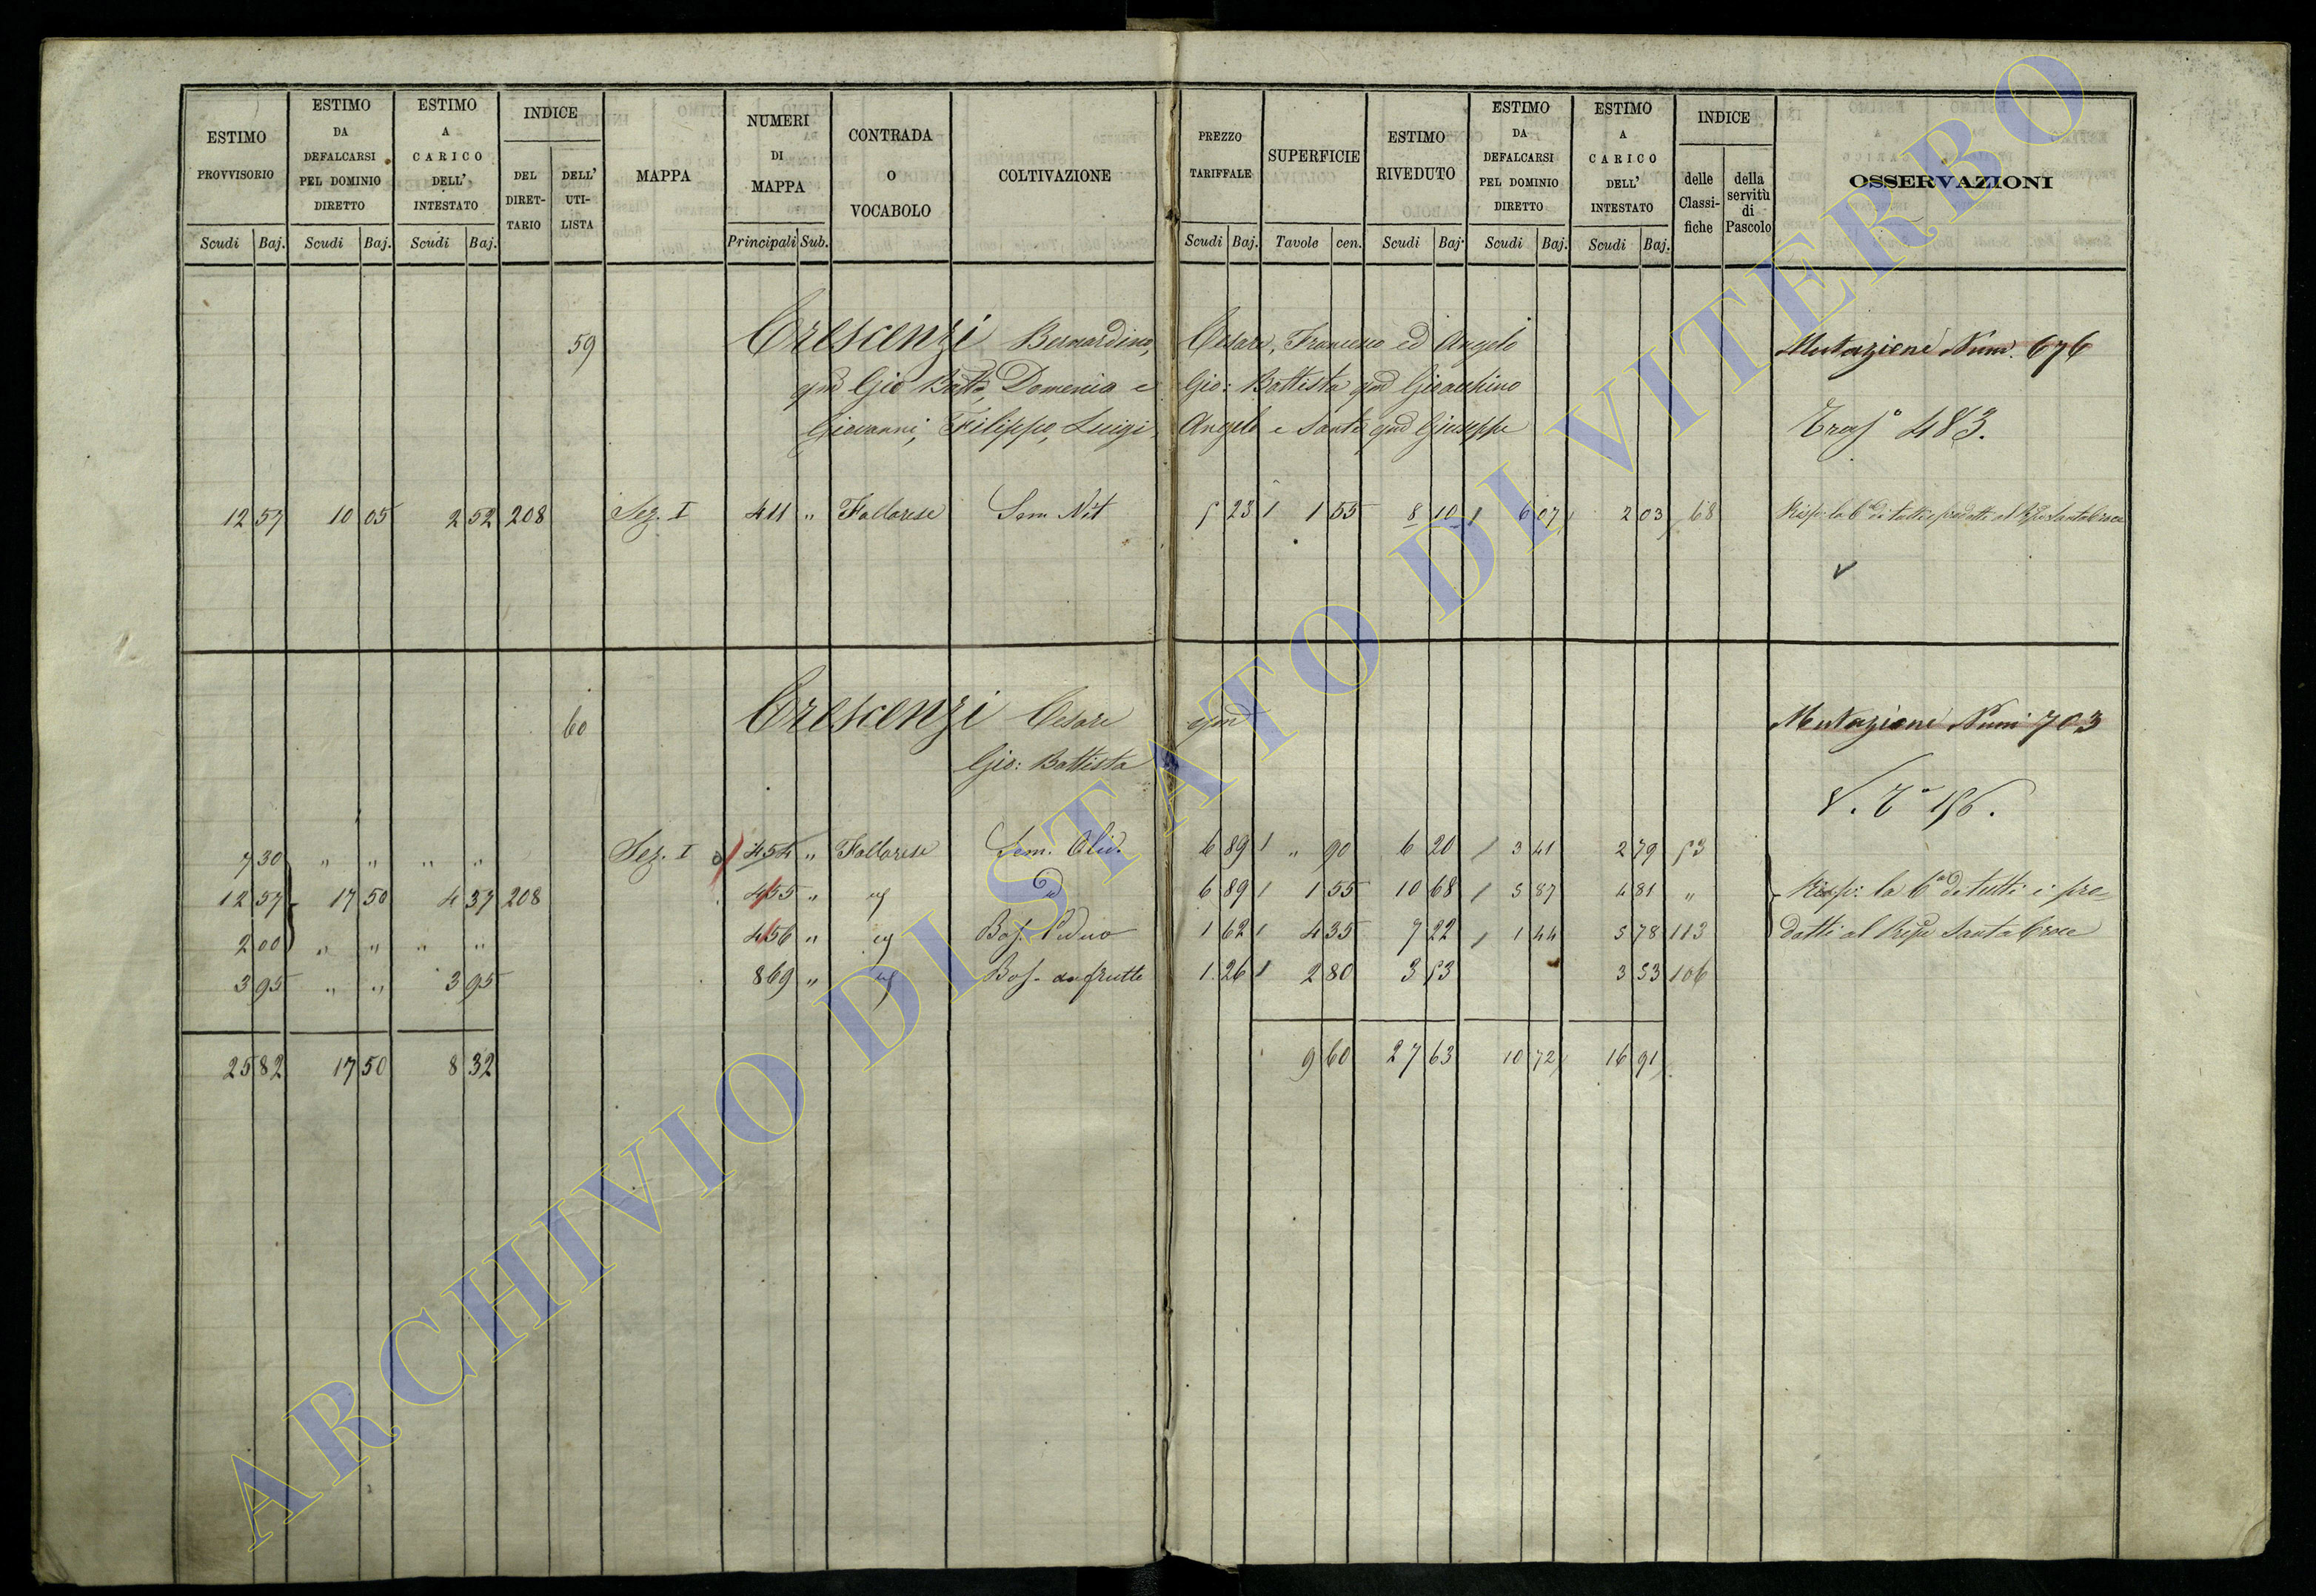 ESTIMO PROVVISORIO Scudi Baj.
ESTIMO DA DEFALCARSI PEL DOMINIO DIRETTO Scudi Baj.
ESTIMO A CARICO DELL' INTESTATO Scudi Baj.
INDICE DEL DIRET-TARIO DELL' UTI-LISTA
MAPPA
NUMERI DI MAPPA Principali Sub.
CONTRADA O VOCABOLO
COLTIVAZIONE
PREZZO TARIFFALE Scudi Baj.
SUPERFICIE Tavole cen.
ESTIMO RIVEDUTO Scudi Baj.
ESTIMO DA DEFALCARSI PEL DOMINIO DIRETTO Scudi Baj.
ESTIMO A CARICO DELL' INTESTATO Scudi Baj.
INDICE delle Classi-fiche della servitù di Pascolo
OSSERVAZIONI
59 Crescenzi Bernardino, Cesare, Francesco ed Angelo Mutazione Num. 676
qm Gio Batta, Domenica e Gio: Battista qm Gioacchino
Giovanni, Filippo, Luigi, Angelo e Santa qm Giuseppe Trasº 483.
12 57 10 05 2 52 208 Sez. I 411 " Follarese Sem. Vit 5 23 1 55 8 10 6 07 2 03 68 Risp: la 6ª di tutti i prodotti al Santa Croce
60 Crescenzi Cesare qm Mutazione Num 703
Gio: Battista
V. Tº 186.
7 30 " " " " Sez. I 454 " Follarese Sem. Oliv. 6 89 " 90 6 20 3 41 2 79 53
12 57 17 50 4 37 208 455 " " id 6 89 1 55 10 68 5 87 4 81 " Risp: la 6ª di tutti i pro=
2 00 " " " " 456 " " Bos. Ceduo 1 62 4 35 7 22 1 44 5 78 113 dotti al Santa Croce
3 95 " " 3 95 869 " " Bos. da frutto 1 26 2 80 3 53 3 53 106
25 82 17 50 8 32 9 60 27 63 10 72 16 91
ARCHIVIO DI STATO DI VITERBO